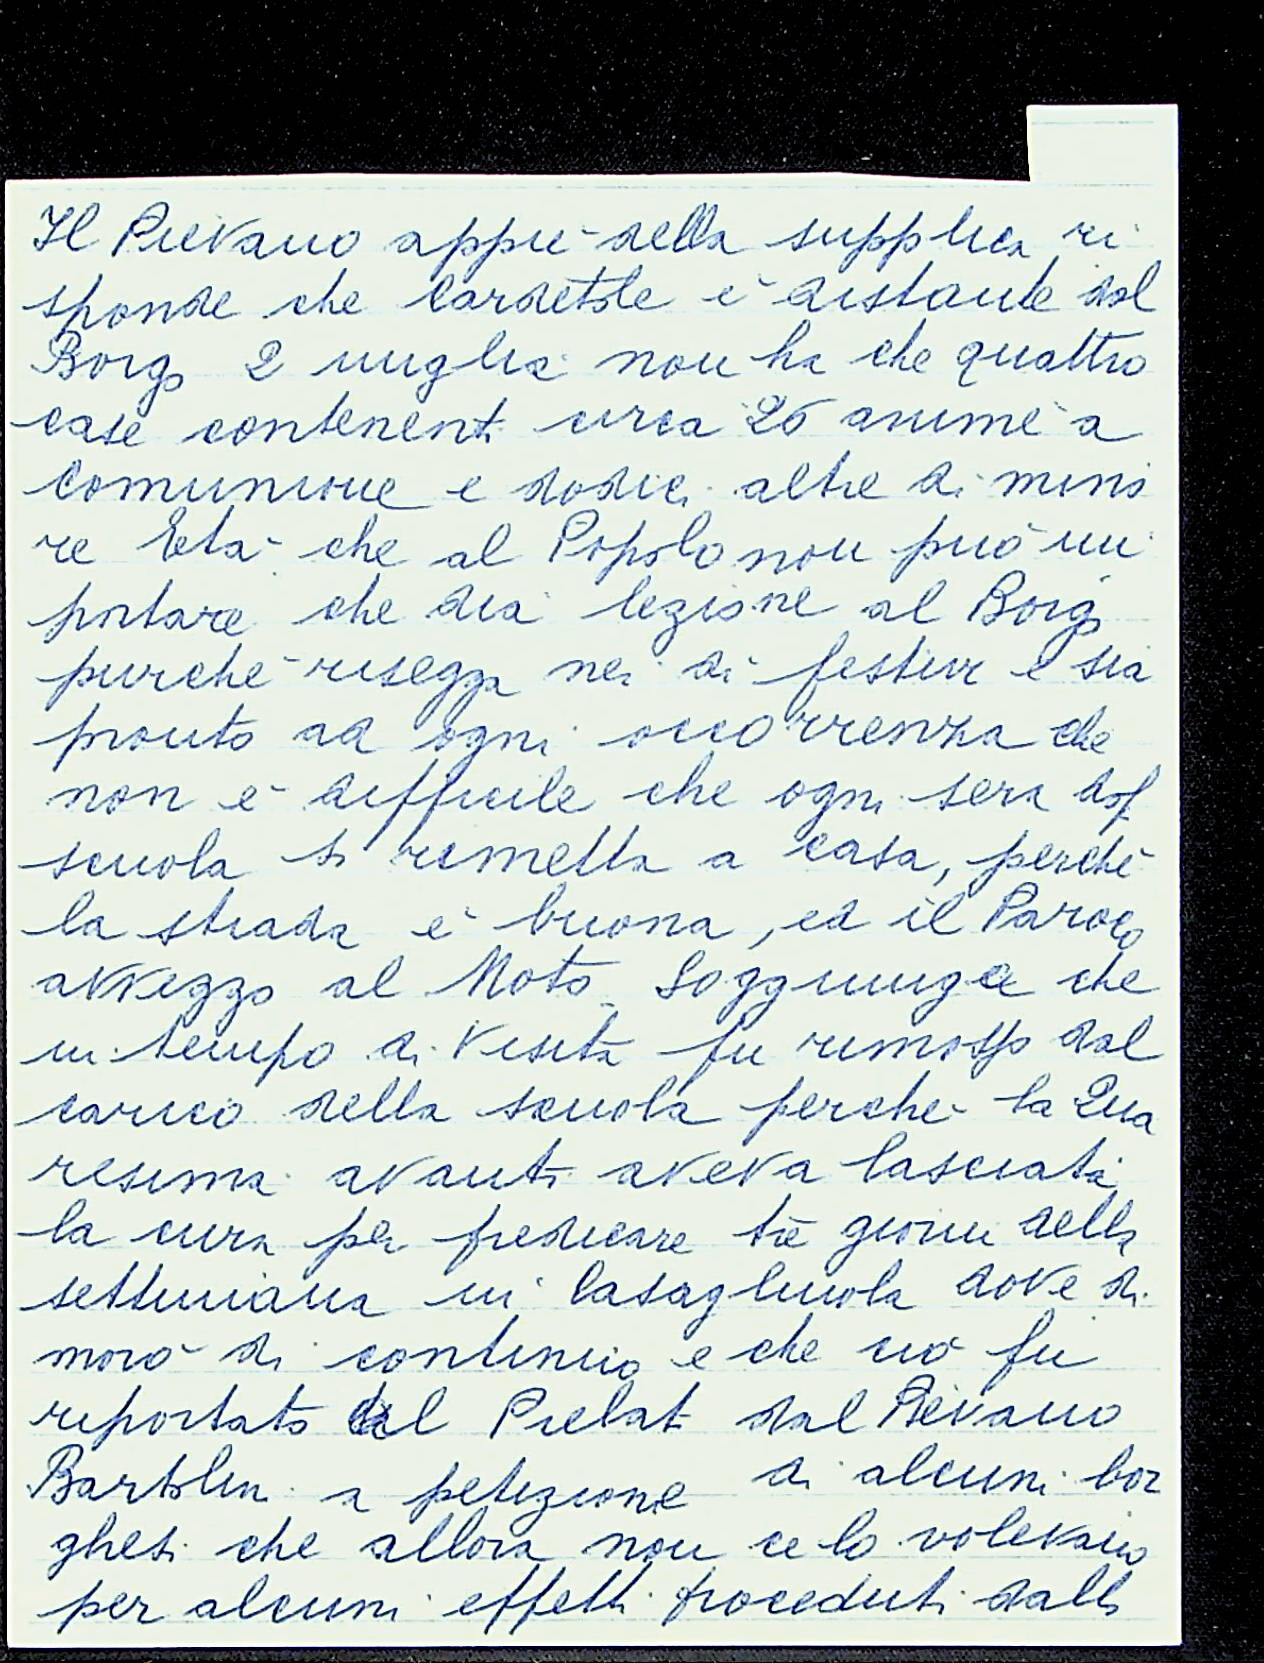 Il Pievano appiè della supplica ri
sponde che Cardetole è distante dal
Borgo 2 miglia non ha che quattro
case contenenti circa 26 anime a
Comunione e dodici altre di mino
re Età che al Popolo non può im
portare che dia lezione al Borgo
purchè risegga nei dì festivi e sia
pronto ad ogni occorrenza che
non è difficile che ogni sera dopo
scuola si rimetta a casa, perchè
la strada è buona, ed il Paroco
avvezzo al Moto. Soggiunge che
in tempo di Visita fu rimosso dal
carico della scuola perchè la Qua
resima avanti aveva lasciata
la cura per predicare tre giorni della
settimana in Casaglinola dove di
morò di continuo e che ciò fu
riportato al Prelat dal Pievano
Bartolini a petizione di alcuni bor
ghesi che allora non ce lo volevano
per alcuni effetti proceduti dallo